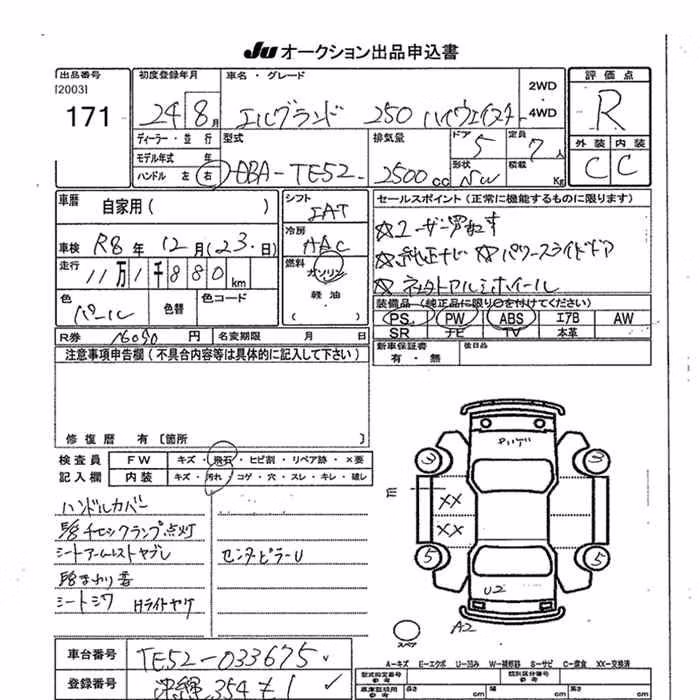 Ju オークション出品申込書
出品番号
[2003]
171
初度登録年月
24年8月
車名・グレード
エルグランド 250 ハイウェイスター
2WD
4WD
評価点
R
外装 内装
C C
ディーラー・並行
モデル年式 年
ハンドル 左 右
型式
DBA-TE52
排気量
2500cc
ドア
5
形状
NW
定員
7人
積載
Kg
車暦
自家用( )
シフト
IAT
冷房
AAC
燃料
ガソリン
軽油
車検 R8年12月(23.日)
走行 11万1千880km
色
パール
色替
色コード
R券 16090円 名変期限 月 日
セールスポイント(正常に機能するものに限ります)
☆ユーザー買取す
☆純正ナビ ☆パワースライドドア
☆社外アルミホイール
装備品(純正品に限り○を付けてください)
PS PW ABS エアB AW
SR ナビ TV 本革
新車保証書
有・無
後日品
注意事項申告欄(不具合内容等は具体的に記入して下さい)
修復歴 有 [箇所 ]
検査員
記入欄
FW キズ・飛石・ヒビ割・リペア跡・×要
内装 キズ・汚れ・コゲ・穴・スレ・キレ・破レ
ハンドルカバー
E/gチェックランプ点灯
シートアームレストヤブレ
センターピラーU
シートシワ Hライトヤケ
3
3
XX
XX
5
5
U2
A2
スペア
A-キズ E-エクボ U-凹み W-補修跡 S-サビ C-腐食 XX-交換済
車台番号 TE52-033675
登録番号 沖縄 354
型式指定番号
参考
類別区分番号
参考
車庫証明用
参考
長さ cm
幅 cm
高さ cm